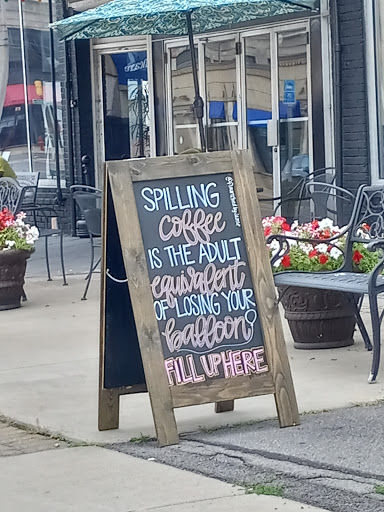 SPILLING
coffee
IS THE ADULT
equivalent
OF LOSING YOUR
balloon
FILL UP HERE